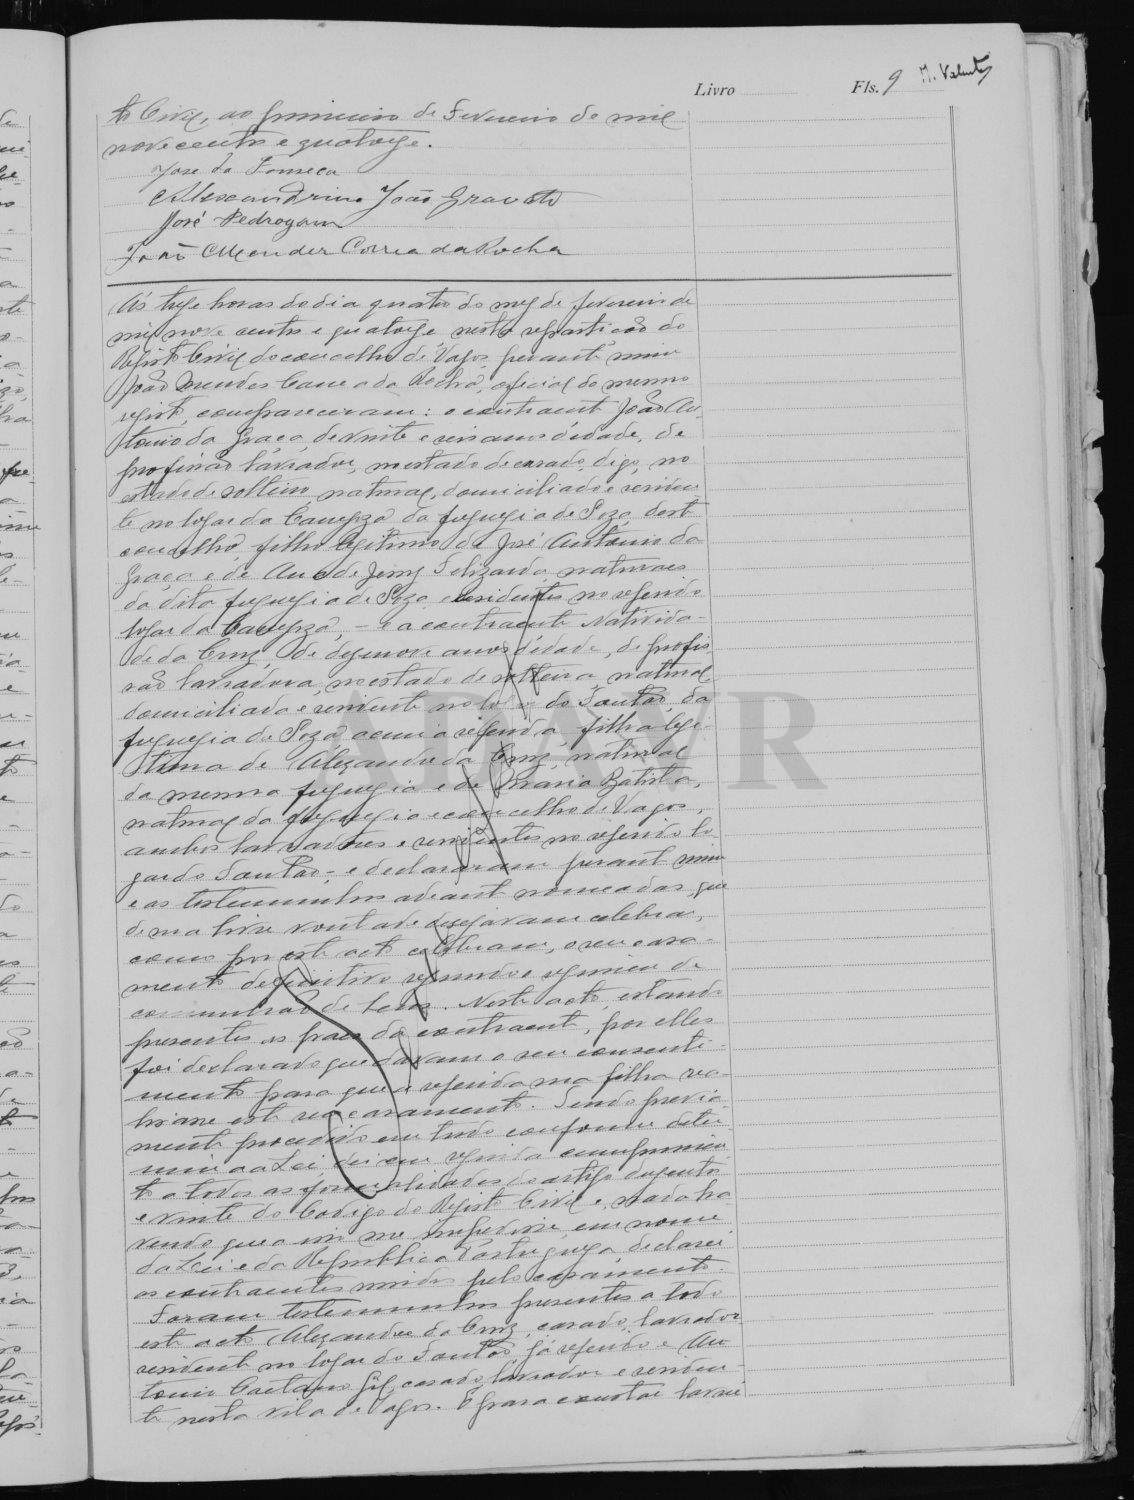 Livro Fls. 9 M. Valente
to Civil, ao primeiro de Fevereiro de mil
novecentos e quatorze.
José da Fonseca
Alexandrino João Gravato
José Pedro
João Mendes Correa da Rocha
Ás treze horas do dia quatro do mez de fevereiro de
mil nove centos e quatorze nesta repartição do
Registo Civil do concelho de Vagos, perante mim
João Mendes Correa da Rocha, oficial do mesmo
registo, compareceram: o contraente João An-
tonio da Graça, de vinte e seis anos d'idade, de
profissão lavrador, no estado de casado, digo, no
estado de solteiro, natural, domiciliado e residen-
te no logar da da freguezia de Soza, deste
concelho, filho legitimo de José Antonio da
Graça e de Ana de Jesus Felizarda, naturaes
da dita freguezia de Soza e residentes no referido
logar da - e a contraente Nativida-
de da Cruz, de dezenove anos d'idade, de profis-
são lavradora, no estado de solteira, natural
domiciliada e residente no logar do Fontão, da
freguezia de Soza acima referida, filha legi-
tima de Alexandre da Cruz, natural
da mesma freguezia e de Maria Batista,
natural da freguezia e concelho de Vagos,
ambos lavradores e residentes no referido lo-
gar do Fontão; e declararam perante mim
e as testemunhas adeante nomeadas, que
de sua livre vontade desejavam celebrar,
como por este acto celebram, o seu casa-
mento definitivo segundo o regimen de
comunhão de bens. Neste acto, estando
presentes os paes da contraente, por elles
foi declarado que davam o seu consenti-
mento para que a referida sua filha rea-
lisasse este seu casamento. Sendo previa-
mente procedido em tudo conforme deter-
mina a Lei, dei em seguida cumprimen-
to a todas as formalidades do artigo duzentos
e vinte do Codigo do Registo Civil e, nada ha-
vendo que a isso me impedisse, em nome
da Lei e da Republica Portugueza, declarei
os contraentes unidos pelo casamento.
Foram testemunhas presentes a todo
este acto Alexandre da Cruz, casado, lavrador
residente no logar do Fontão já referido e An-
tonio Caetano Gil, casado, lavrador e residen-
te nesta vila de Vagos. E para constar lavrei
ADAVR